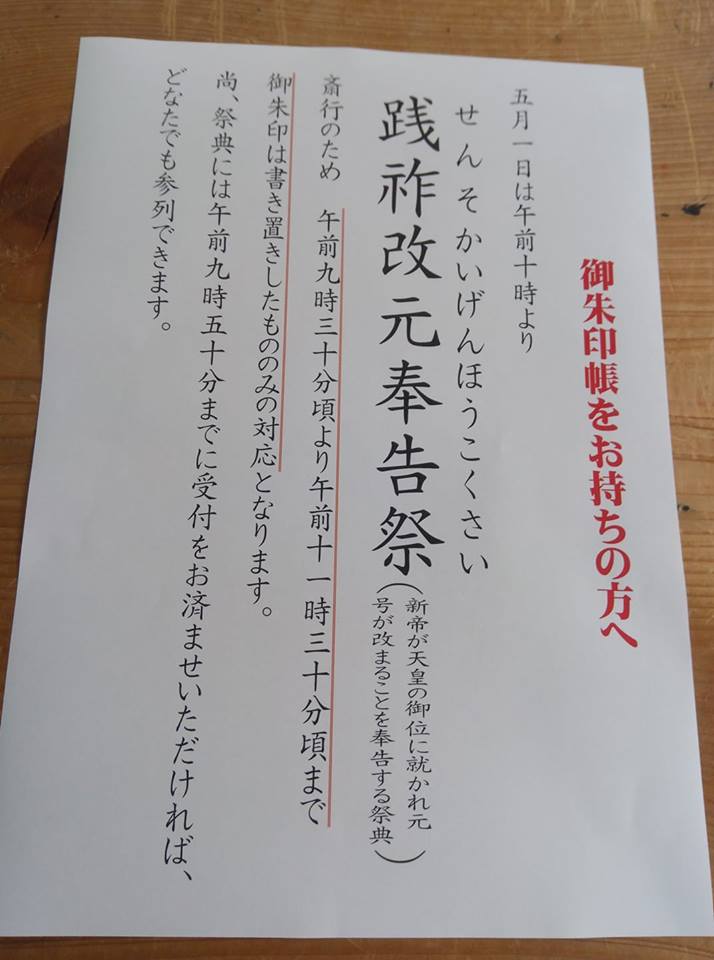 御朱印帳をお持ちの方へ
五月一日は午前十時より
せんそかいげんほうこくさい
践祚改元奉告祭
(新帝が天皇の御位に就かれ元
号が改まることを奉告する祭典)
斎行のため 午前九時三十分頃より午前十一時三十分頃まで
御朱印は書き置きしたもののみの対応となります。
尚、祭典には午前九時五十分までに受付をお済ませいただければ、
どなたでも参列できます。